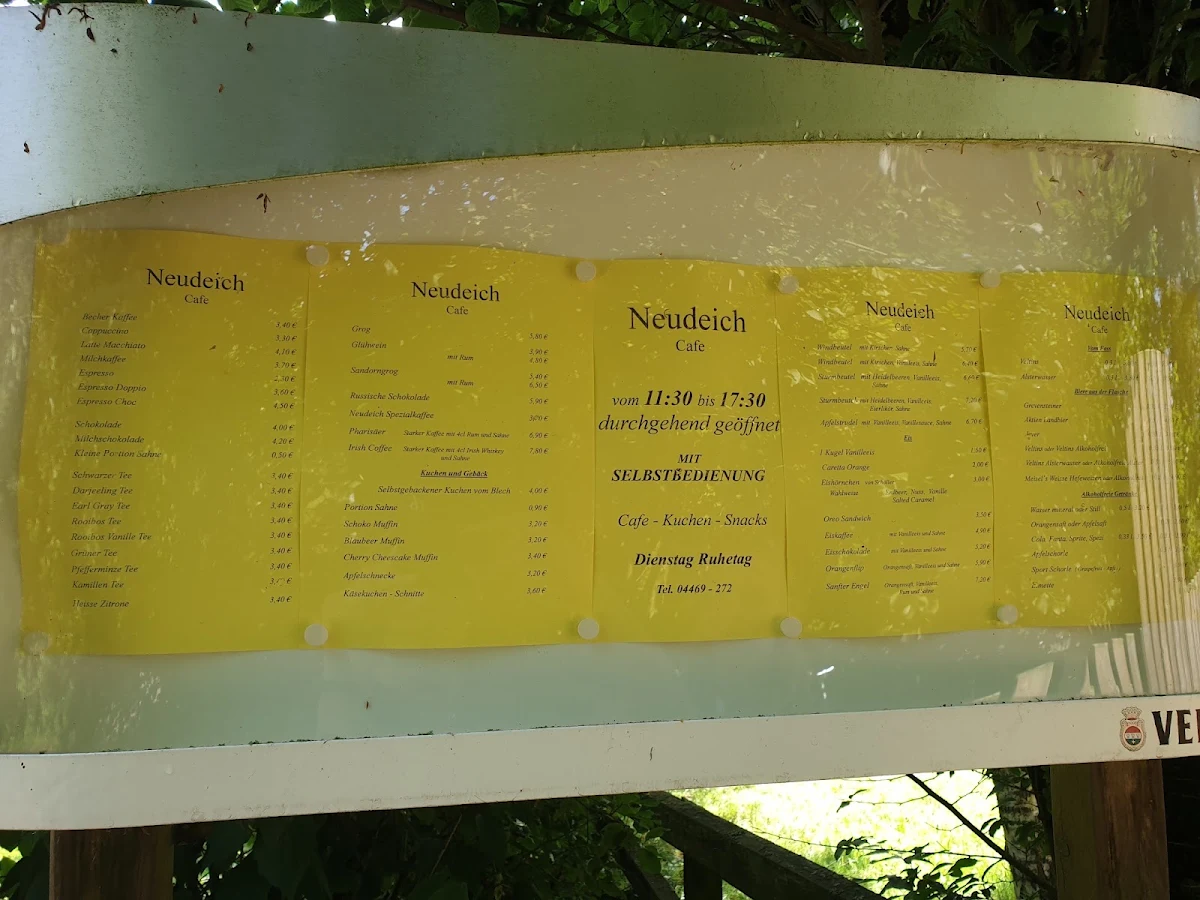 Neudeich
Cafe
Becher Kaffee 3,40 €
Cappuccino 3,30 €
Latte Macchiato 4,10 €
Milchkaffee 3,70 €
Espresso
Espresso Doppio 3,60 €
Espresso Choc 4,50 €
Schokolade 4,00 €
Milchschokolade 4,20 €
Kleine Portion Sahne 0,50 €
Schwarzer Tee 3,40 €
Darjeeling Tee 3,40 €
Earl Gray Tee 3,40 €
Rooibos Tee 3,40 €
Rooibos Vanille Tee 3,40 €
Grüner Tee 3,40 €
Pfefferminze Tee 3,40 €
Kamillen Tee
Heisse Zitrone 3,40 €
Neudeich
Cafe
Grog 3,80 €
Glühwein 3,90 €
mit Rum 4,80 €
Sandorngrog 5,40 €
mit Rum 6,50 €
Russische Schokolade 5,90 €
Neudeich Spezialkaffee
Pharisäer Starker Kaffee mit 4cl Rum und Sahne 6,90 €
Irish Coffee Starker Kaffee mit 4cl Irish Whiskey 7,80 €
und Sahne
Kuchen und Gebäck
Selbstgebackener Kuchen vom Blech 4,00 €
Portion Sahne 0,90 €
Schoko Muffin 3,20 €
Blaubeer Muffin 3,20 €
Cherry Cheescake Muffin 3,40 €
Apfelschnecke 3,20 €
Käsekuchen - Schnitte 3,60 €
Neudeich
Cafe
vom 11:30 bis 17:30
durchgehend geöffnet
MIT
SELBSTBEDIENUNG
Cafe - Kuchen - Snacks
Dienstag Ruhetag
Tel. 04469 - 272
Neudeich
Cafe
Windbeutel mit Kirschen Sahne 5,70 €
Windbeutel mit Kirschen, Vanilleeis, Sahne
Sturmbeutel mit Heidelbeeren, Vanilleeis,
Sahne
Sturmbeutel mit Heidelbeeren, Vanilleeis, 7,20 €
Eierlikör, Sahne
Apfelstrudel mit Vanilleeis, Vanillesauce, Sahne 6,70 €
Eis
1 Kugel Vanilleeis 1,50 €
Caretta Orange
Eishörnchen von Schöller
Waldbeere, Nuss, Vanille
Salted Caramel
Oreo Sandwich 3,50 €
Eiskaffee mit Vanilleeis und Sahne 4,90 €
Eisschokolade mit Vanilleeis und Sahne 5,20 €
Orangenflip Orangensaft, Vanilleeis und Sahne 5,90 €
Sanfter Engel Orangensaft, Vanilleeis, 7,20 €
Rum und Sahne
Neudeich
Cafe
Vom Fass
Veltins
Alsterwasser
Biere aus der Flasche
Grevensteiner
Aktien Landbier
Jever
Veltins oder Veltins Alkoholfrei
Veltins Alsterwasser oder Alkoholfrei
Meisel's Weisse Hefeweizen oder
Alkoholfreie Getränke
Wasser mineral oder Still
Orangensaft oder Apfelsaft
Cola, Fanta, Sprite, Spezi
Apfelschorle
Sport Schorle